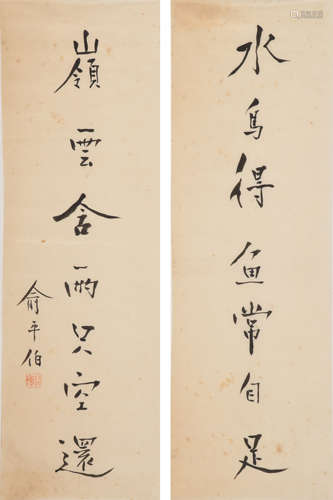 水鳥得魚常自足
嶺雲含雨只空還
俞平伯